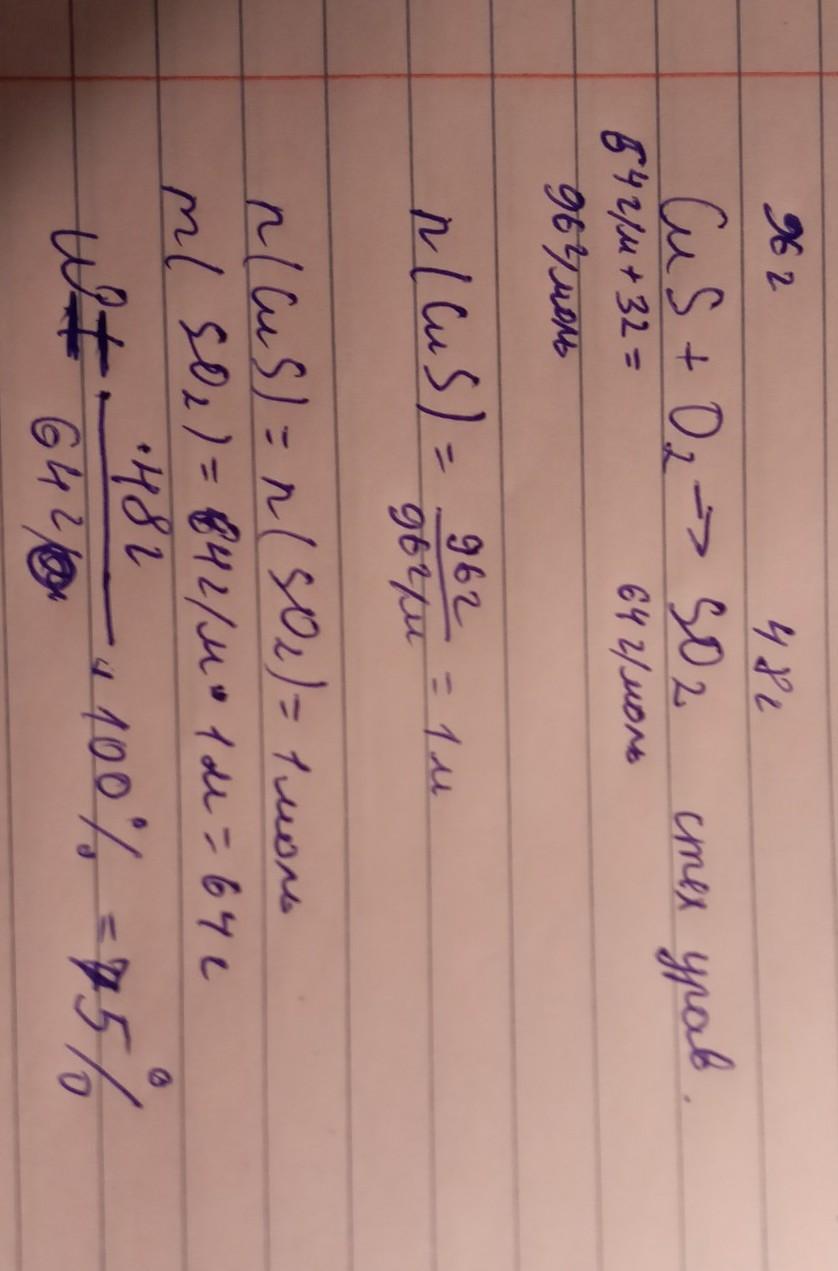 96 г 48 г
CuS + O₂ → SO₂ стех урав.
64 г/м + 32 = 64 г/моль
96 г/моль
n(CuS) = 96 г / 96 г/м = 1 м
n(CuS) = n(SO₂) = 1 моль
m(SO₂) = 64 г/м • 1 м = 64 г
48 г / 64 г · 100% = 75%